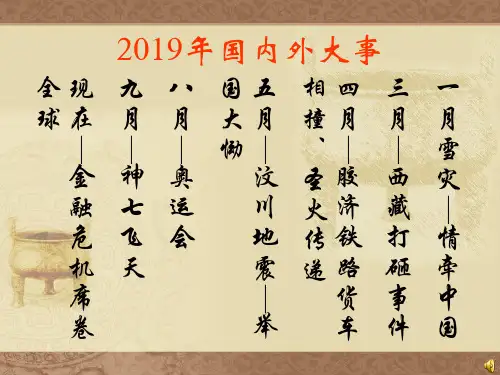 2019年国内外大事
一月雪灾—情牵中国
三月—西藏打砸事件
四月—胶济铁路货车
相撞、圣火传递
五月—汶川地震—举
国大恸
八月—奥运会
九月—神七飞天
现在—金融危机席卷
全球